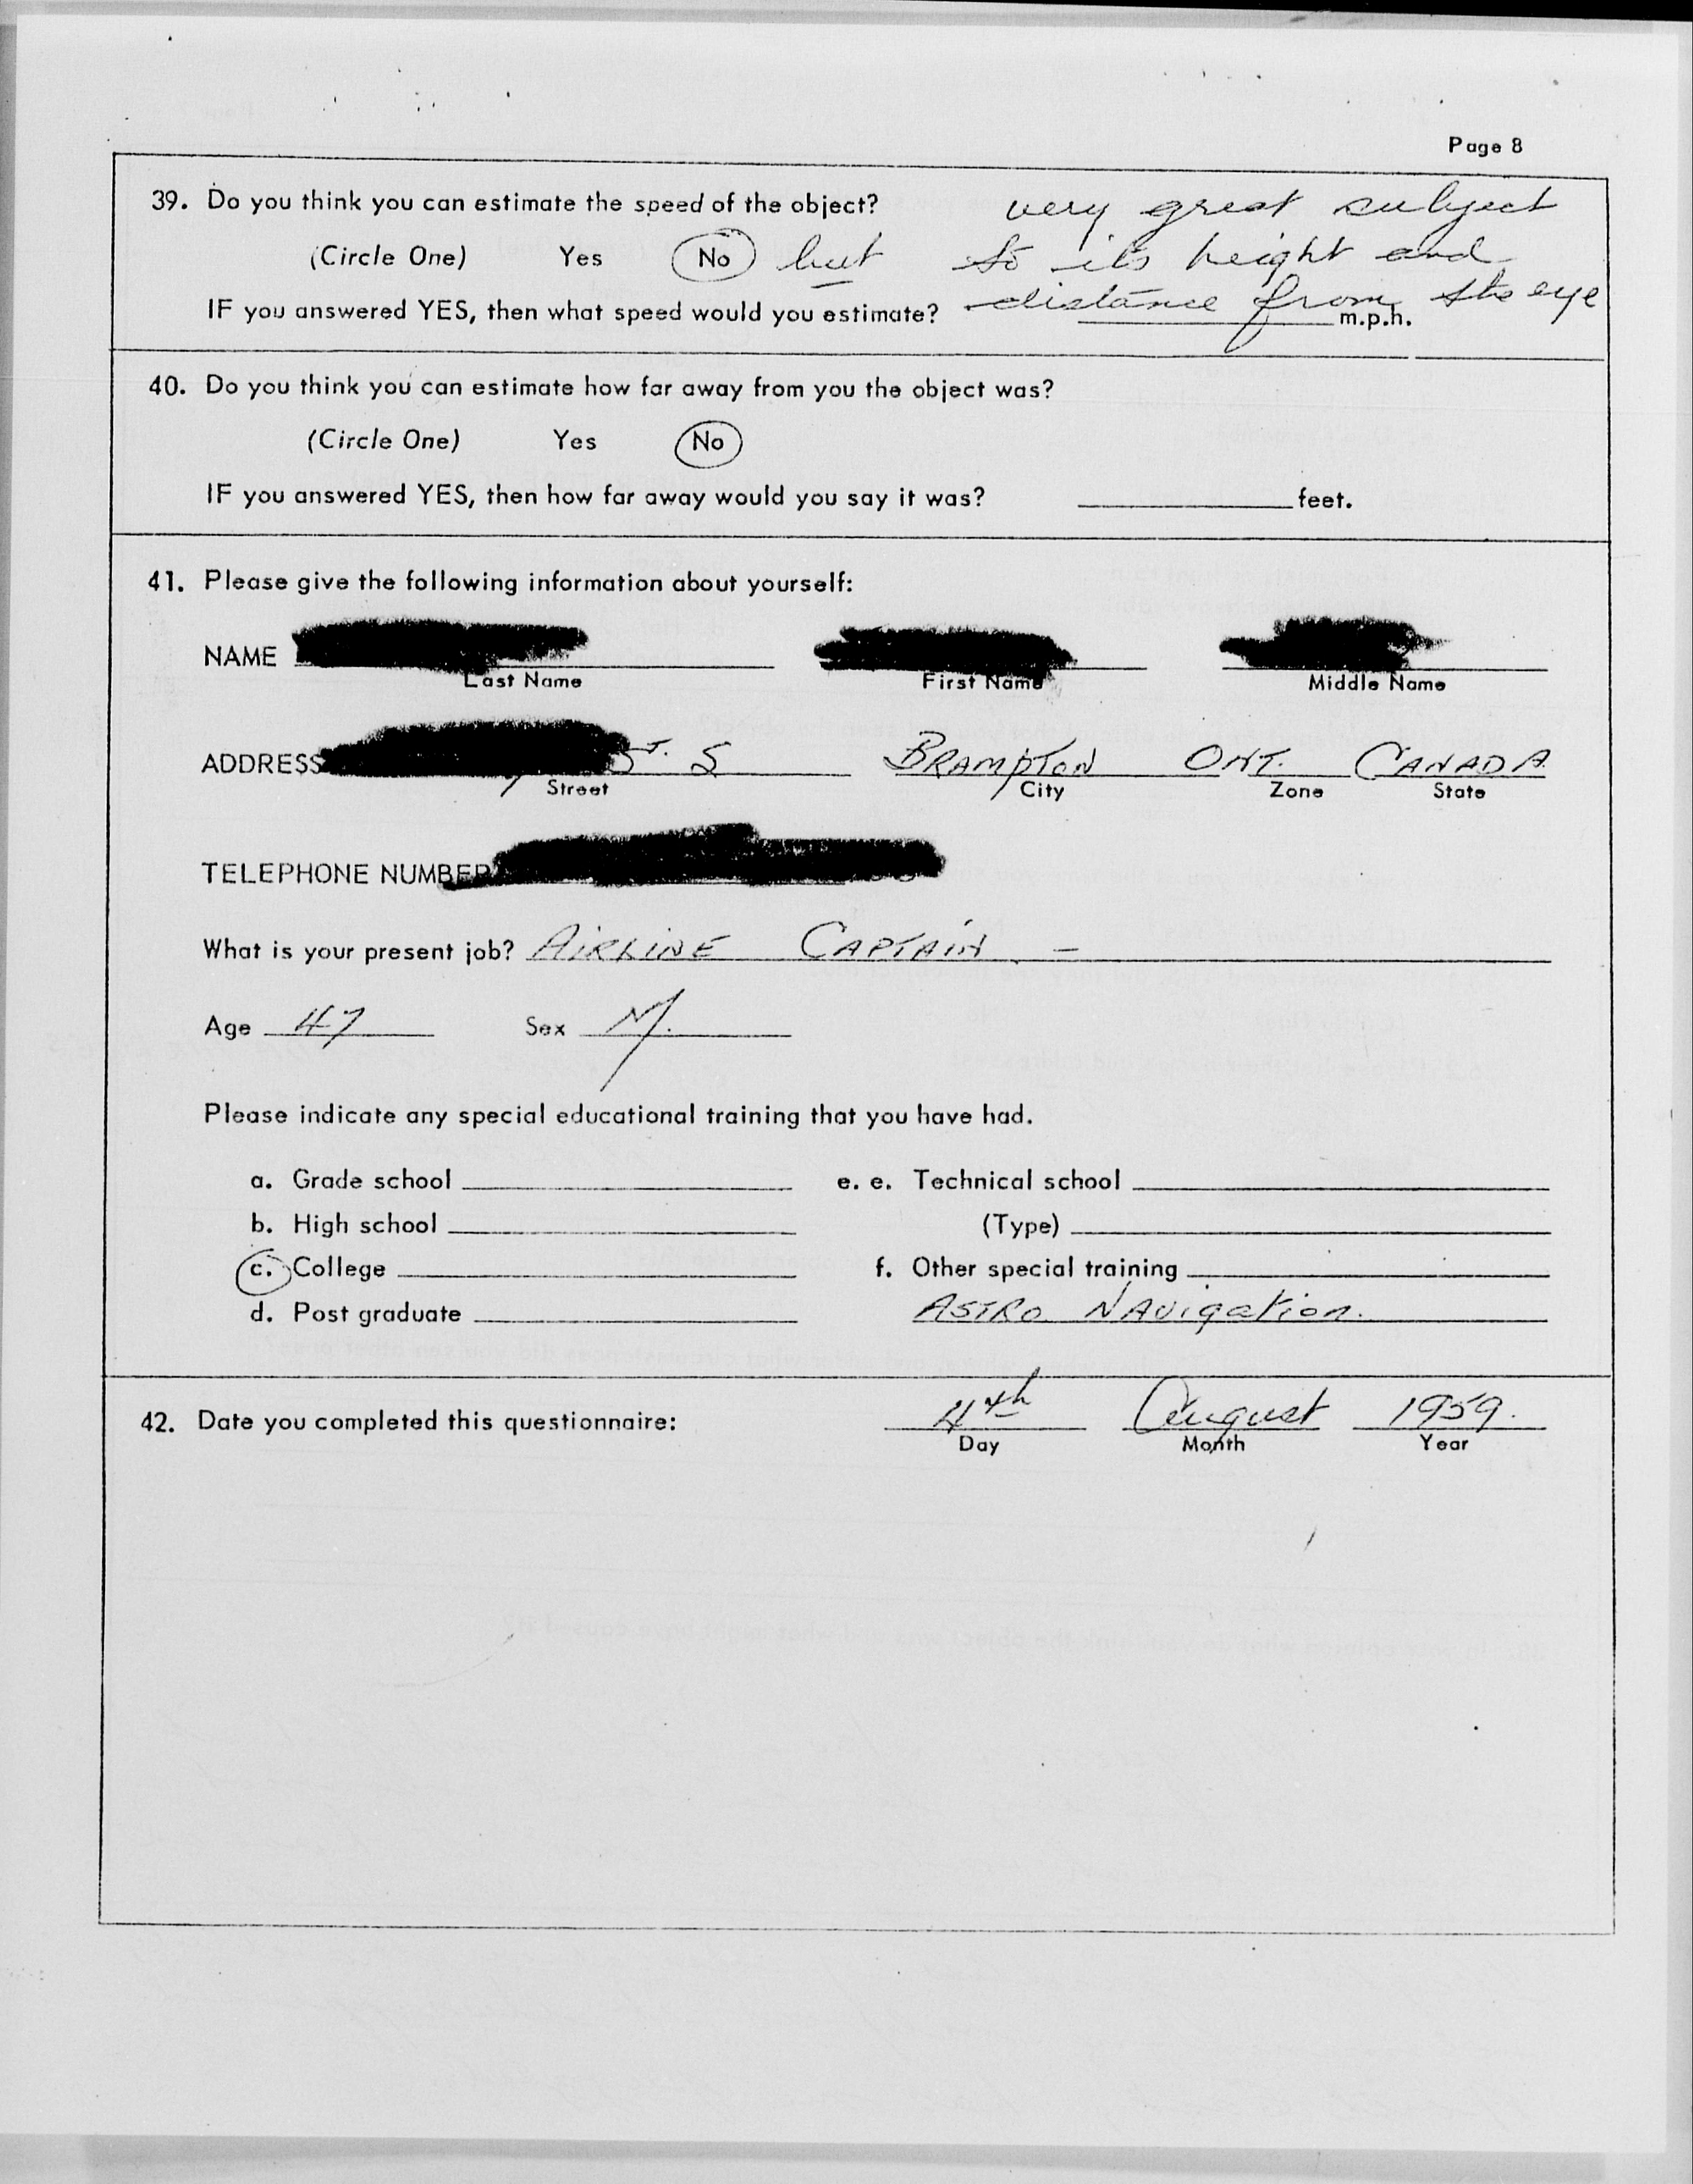 Page 8
39. Do you think you can estimate the speed of the object? very great subject
(Circle One) Yes No but to its height and
IF you answered YES, then what speed would you estimate? distance from the eye m.p.h.
40. Do you think you can estimate how far away from you the object was?
(Circle One) Yes No
IF you answered YES, then how far away would you say it was? feet.
41. Please give the following information about yourself:
NAME
Last Name First Name Middle Name
ADDRESS ST. S BRAMPTON ONT. CANADA
Street City Zone State
TELEPHONE NUMBER
What is your present job? AIRLINE CAPTAIN -
Age 47 Sex M.
Please indicate any special educational training that you have had.
a. Grade school e. e. Technical school
b. High school (Type)
c. College f. Other special training
d. Post graduate ASTRO NAVigation.
42. Date you completed this questionnaire: 4th August 1959.
Day Month Year